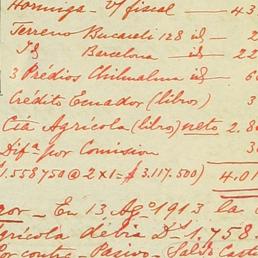 Hormiga - V/ fiscal — 43
Terreno Bucareli 128 id — 2
Id Barcelona id — 22
3 Prédios Chihualma id — 6
Crédito Ecuador (libros) 3
Ciá Agrícola (libro) neto 2.80
Difª por Comision 30
1.558750 @ 2 x 1 = $ 3.117.500) 4.01
En 13 Agº 1913 la
Agrícola debia 1.758
Por contra - Pasivo - Saldo